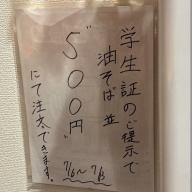 学生証のご提示で
油そば 並
"500円"
にて注文できます。
7/6〜7/13